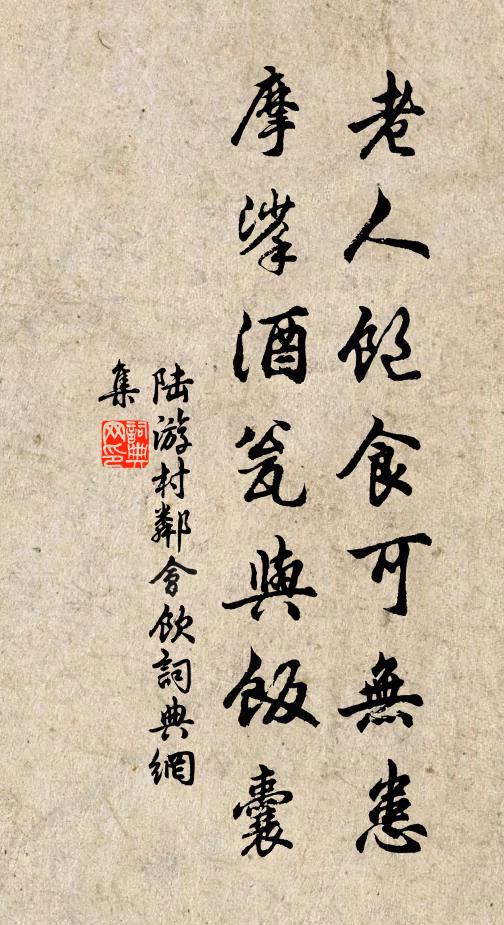 老人飽食可無患
摩挲酒瓮與飯囊
陆游村鄰會飲詞典網
集
詞典
网印